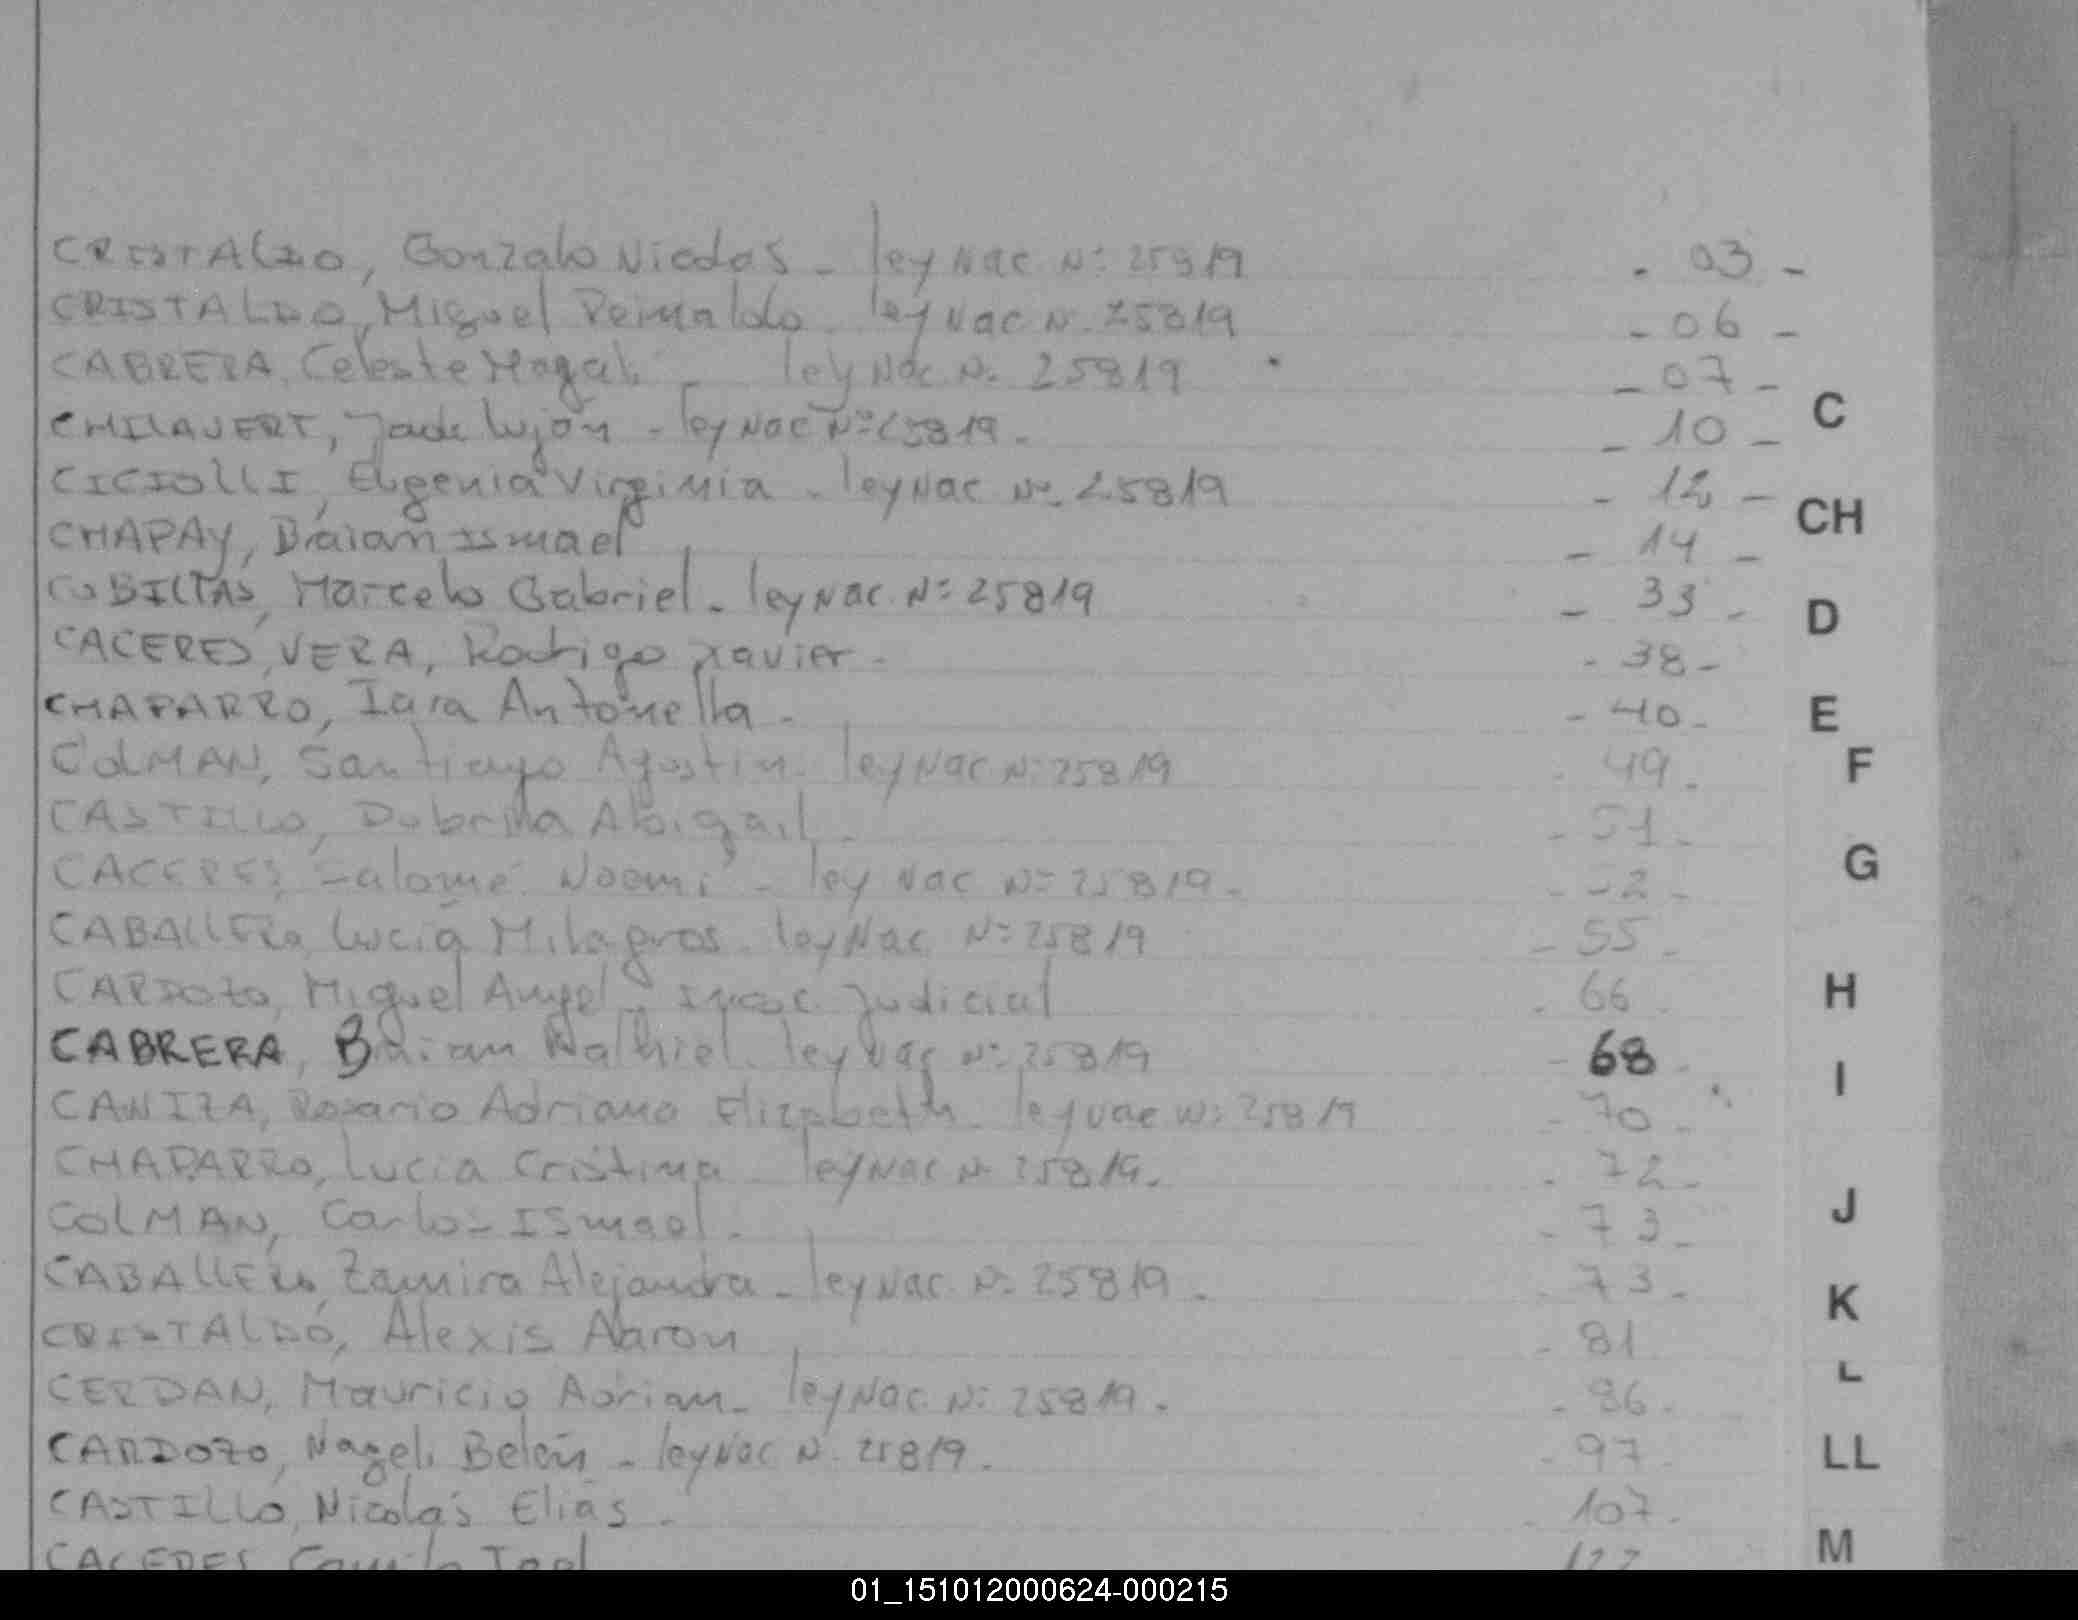 CRISTALDO, Gonzalo Nicolas - ley Nac N: 25819 - 03 -
CRISTALDO, Miguel Reinaldo. ley Nac N. 25819 - 06 -
CABRERA, Celeste Magali - ley Nac. N. 25819 - 07 -
C
CHILAVERT, Jade Luján - ley Nac Nº 25819 - - 10 -
CICIOLLI, Eugenia Virginia - ley Nac Nº 25819 - 12 -
CH
CHAPAY, Braian Ismael - 14 -
Marcelo Gabriel - ley Nac. N: 25819 - 33 -
D
CACERES, VERA, Rodrigo Xavier - - 38 -
CHAPARRO, Iara Antonella - - 40 -
E
COLMAN, Santiago Agustin. ley Nac N: 25819 - 49 -
F
CASTILLO, Abigail - - 51 -
CACERES, Salomé Noemi - ley Nac N= 25819 - - 2 -
G
CABALLERO, Lucia Milagros - ley Nac. N= 25819 - 55 -
CARDOZO, Miguel Angel - Insc. Judicial - 66 -
H
CABRERA, Braian ley Nac N: 25819 - 68 -
I
CANIZA, Rosario Adriana Elizabeth - ley Nac N: 25819 - 70 -
CHAPARRO, Lucia Cristina - ley Nac N. 25819. - 72 -
COLMAN, Carlos Ismael - - 73 -
J
CABALLERO, Zamira Alejandra - ley Nac. N. 25819 - - 73 -
K
CRISTALDO, Alexis Aaron - 81
L
CERDAN, Mauricio Adrian - ley Nac. N: 25819 - - 86 -
CARDOZO, Nageli Belén - ley Nac N. 25819 - - 97 -
LL
CASTILLO, Nicolás Elías - - 107 -
M
CACERES, Camilo
01_151012000624-000215